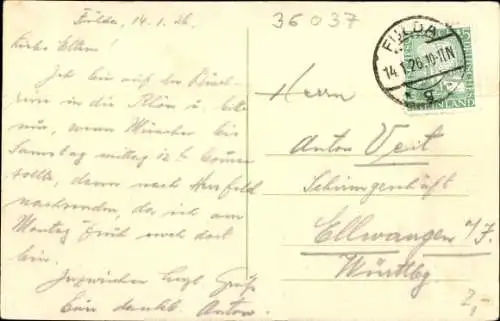 Fulda, 14.1.26.
Liebe Eltern!
Ich bin auf der Durch-
reise in die Rhön u. bitte
mir, wenn bis
Samstag mittag 12 h kommen
sollte, dann nach Hersfeld
nachsenden, da ich am
Montag früh noch dort
bin.
Inzwischen herzl. Grüße
Euer dankb. Anton.
36037
FULDA
14.1.26.10-11N
g
RHEINLAND
Herrn
Anton Veit
Schirmgeschäft
Ellwangen a/J.
Württbg
2,-